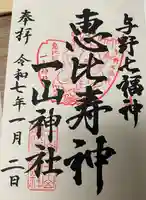 与野七福神
恵比寿神
一山神社
奉拝
令和七年一月二日